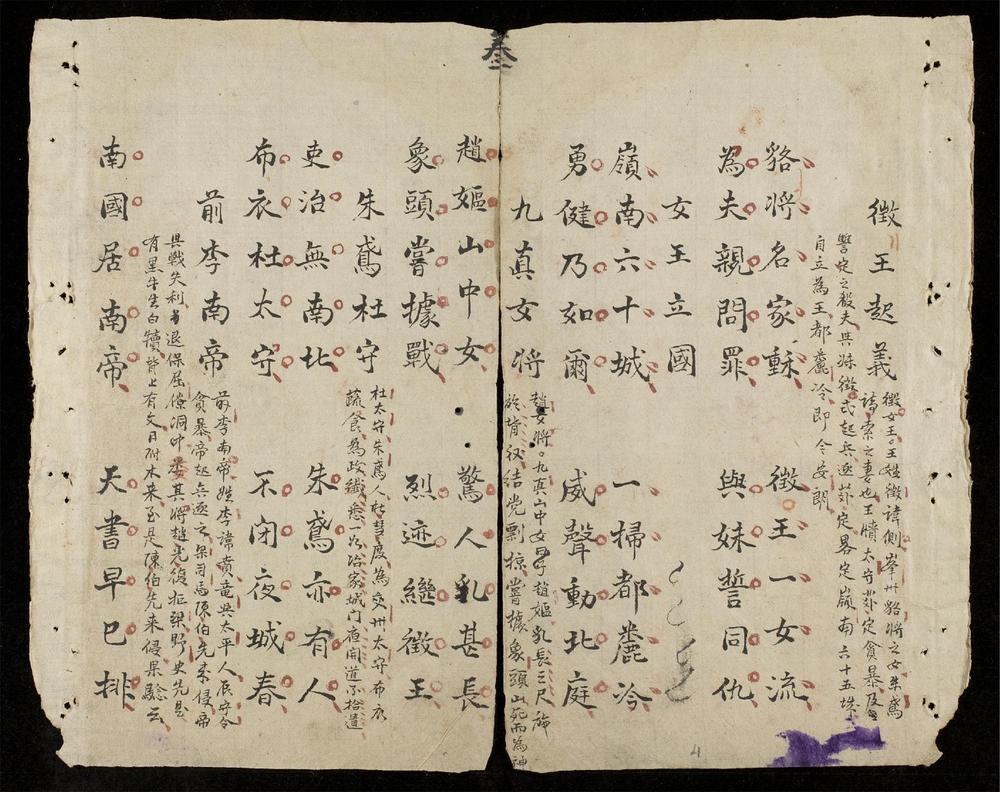 叁
徵王起義
徵女王。王姓徵諱側峯州貉將之女朱鳶
詩索之妻也王憤太守苏定貪暴及
讐定之殺夫與妹徵弍起兵逐苏定畧定嶺南六十五城
自立為王都麊冷即今安朗
貉將名家穌 徵王一女流
為夫親問罪 與妹誓同仇
女王立國
嶺南六十城 一掃都麊冷
勇健乃如爾 威聲動北庭
九真女將
趙女將。九真山中女子趙嫗乳長三尺施
於背後結党剽掠嘗據象頭山死而為神
趙嫗山中女 驚人乳甚長
象頭嘗據戰 烈迹繼徵王
朱鳶杜守
杜太守朱鳶人杜慧度為交州太守布衣
蔬食為政纖悉一如治家城门夜開道不拾遺
吏治無南北 朱鳶亦有人
布衣杜太守 不閉夜城春
前李南帝
前李南帝姓李諱賁竜興太平人辰守令
貪暴帝起兵逐之梁司馬陳伯先来侵帝
與戰失利退保屈僚洞中委其將趙光復拒梁野史先是
有黑牛生白犢背上有文曰附木来至是陳伯先来侵果驗云
南國居南帝 天書早已排
4